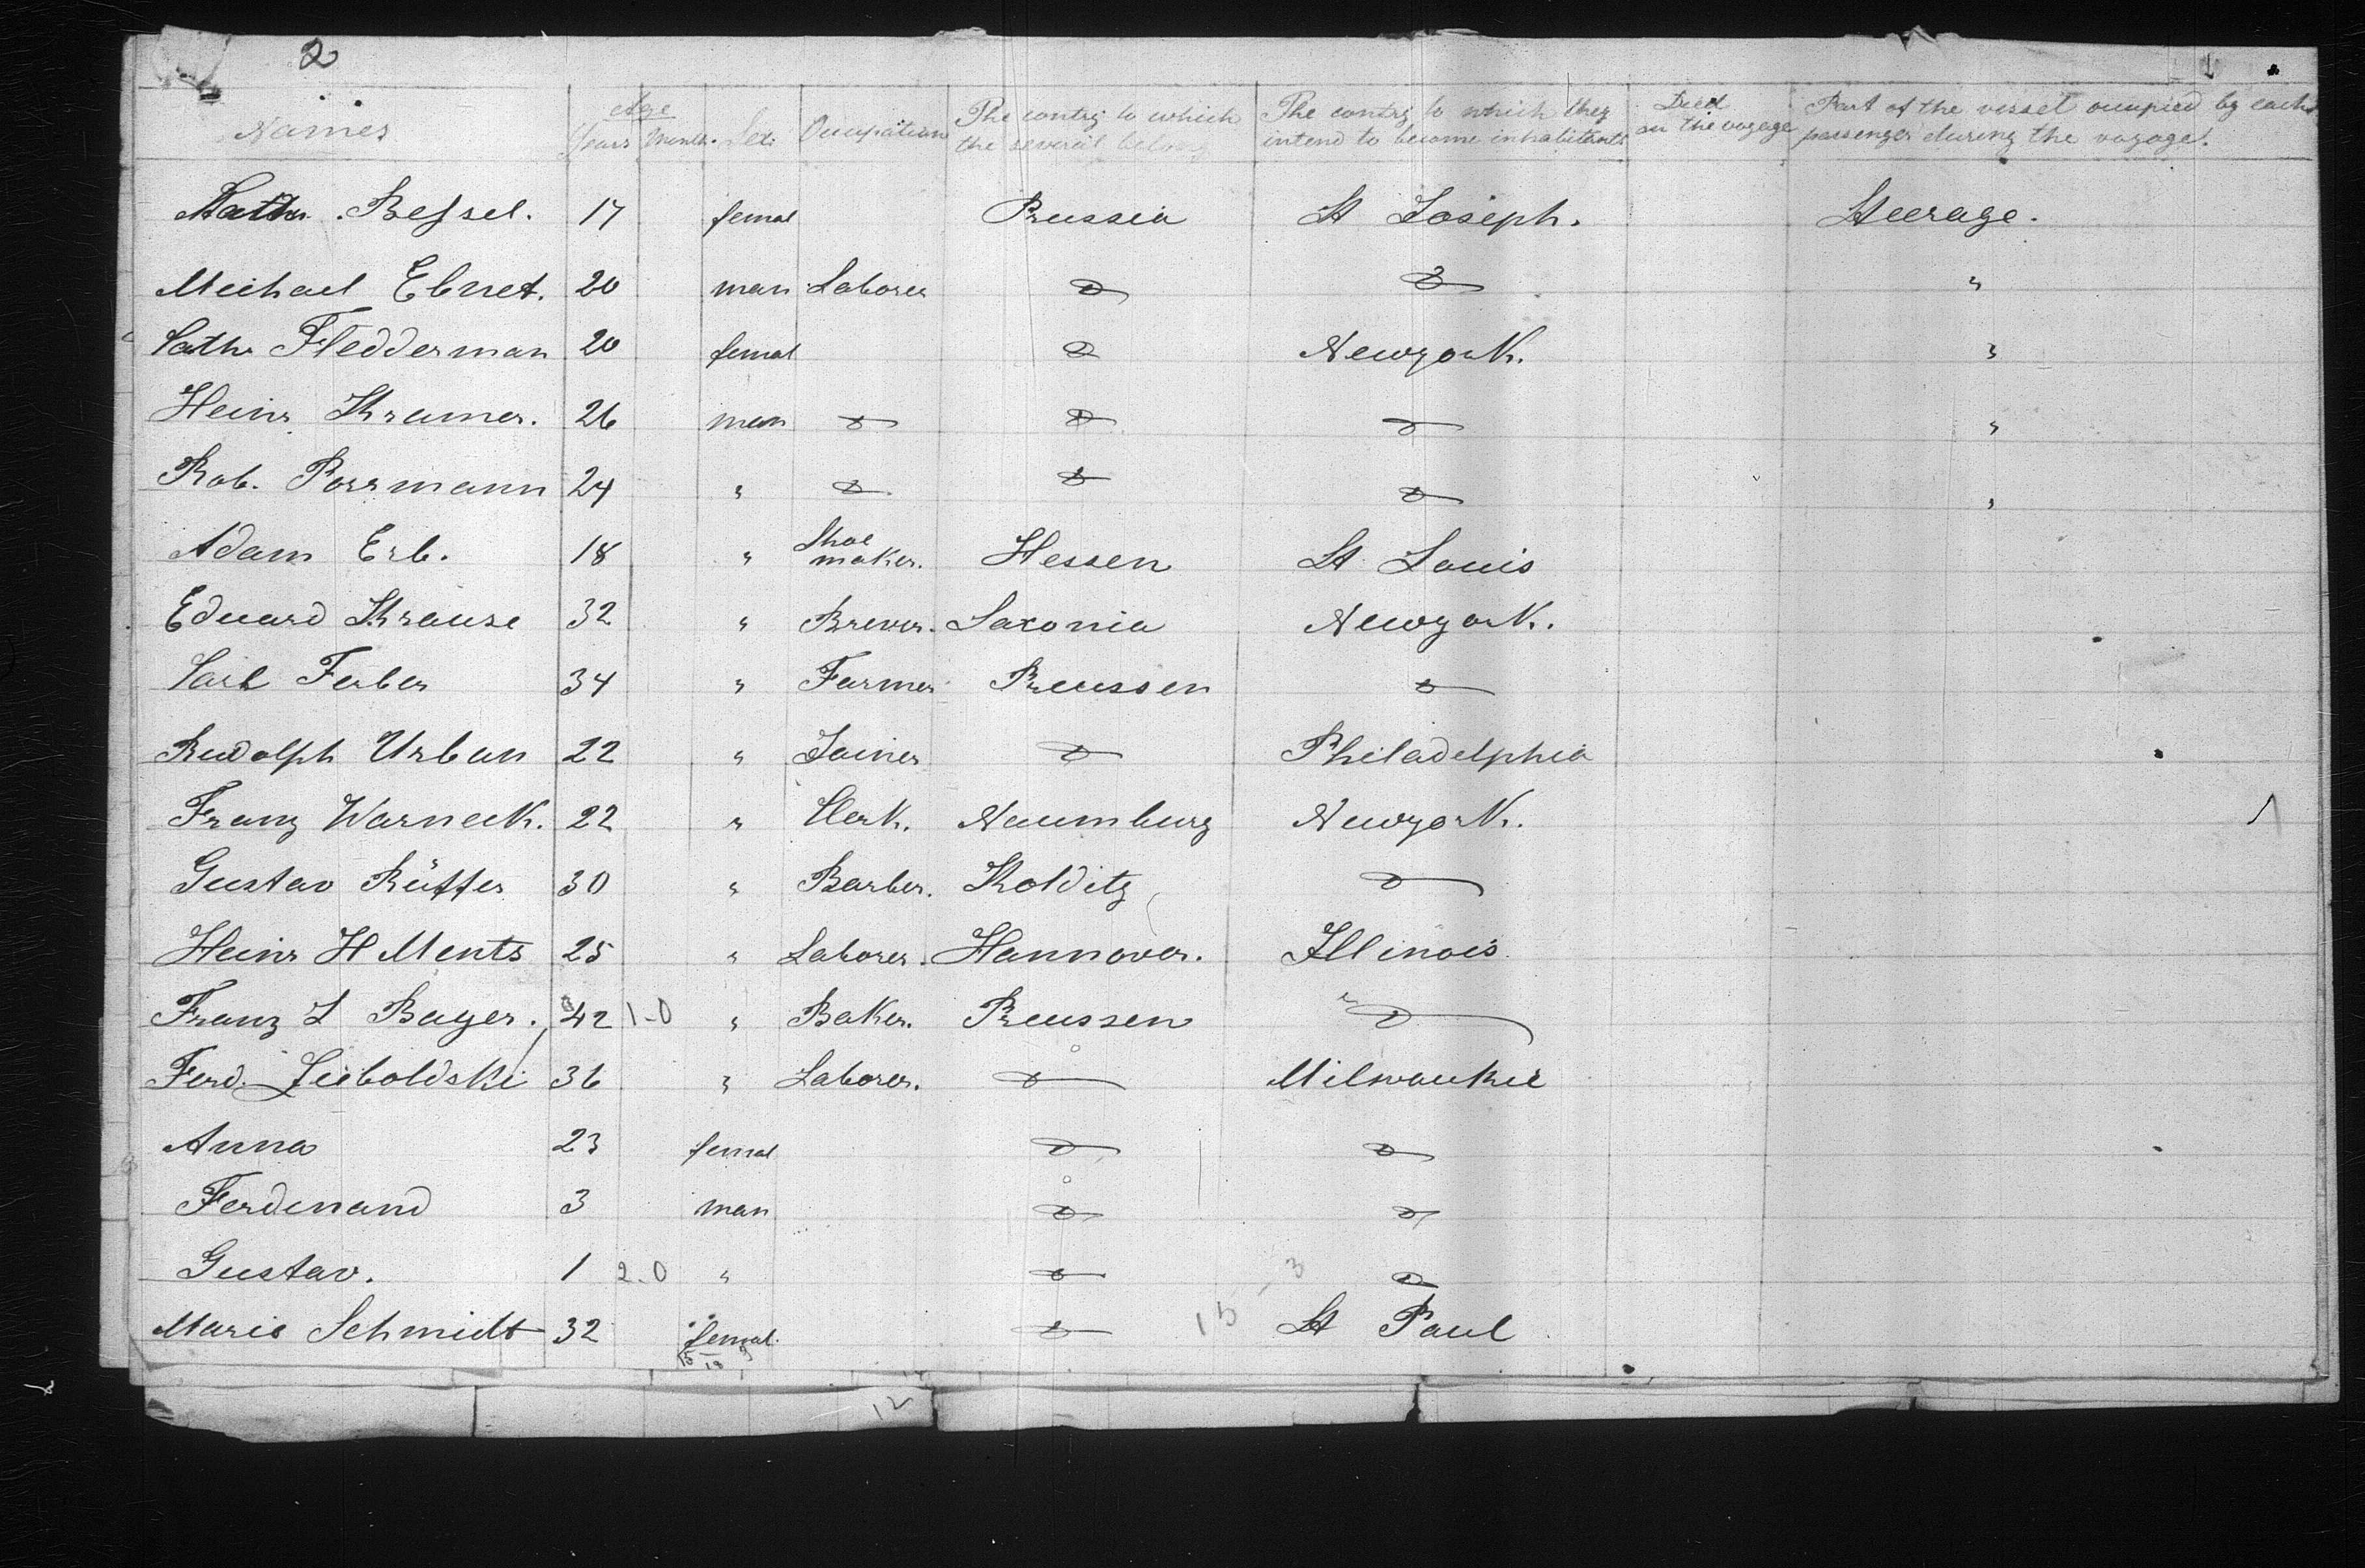 2
Names Age Years Month. Sex Occupation The contry to which the several belong The contry to which they intend to become inhabitants Died on the voyage Part of the vessel occupied by each passenger during the voyage.
Cath. Bessel. 17 femal Prussia St Joseph. Steerage.
Michael Ebnet. 20 man Laborer do do "
Cath Fledderman 20 femal do Newyork. "
Heinr Kramer. 26 man do do do "
Rob. Porrmann 24 " do do do "
Adam Erb. 18 " Shoe maker. Hessen St Louis
Eduard Krause 32 " Brewer. Saxonia Newyork.
Carl Ferber 34 " Farmer Preussen do
Rudolph Urban 22 " Joiner do Philadelphia
Franz Warneck. 22 " Clerk. Naumburg Newyork.
Gustav Rüffer 30 " Barber. Kolditz do
Heinr H Ments 25 " Laborer. Hannover. Illinois
Franz L Bayer. 42 1-0 " Baker. Preussen " do
Ferd. Zieboldski 36 " Laborer. do Milwaukie
Anna 23 femal do do
Ferdinand 3 man do do
Gustav. 1 2-0 " do do
Marie Schmidt 32 femal. do St Paul
15 3
12